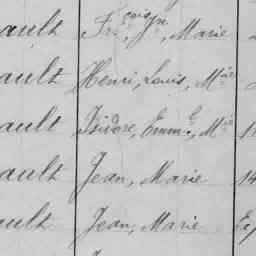 ault Fr.çois, Jn, Marie
ault Henri, Louis, Mie
ault Isidore, Emm.l, Mie 1
ault Jean, Marie 14
ault Jean, Marie